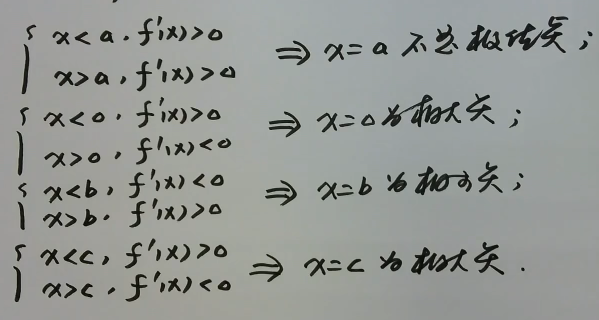 { x<a, f'(x)>0
x>a, f'(x)>0 ⇒ x=a 不是极值点;
{ x<0, f'(x)>0
x>0, f'(x)<0 ⇒ x=0 为极大点;
{ x<b, f'(x)<0
x>b, f'(x)>0 ⇒ x=b 为极小点;
{ x<c, f'(x)>0
x>c, f'(x)<0 ⇒ x=c 为极大点.